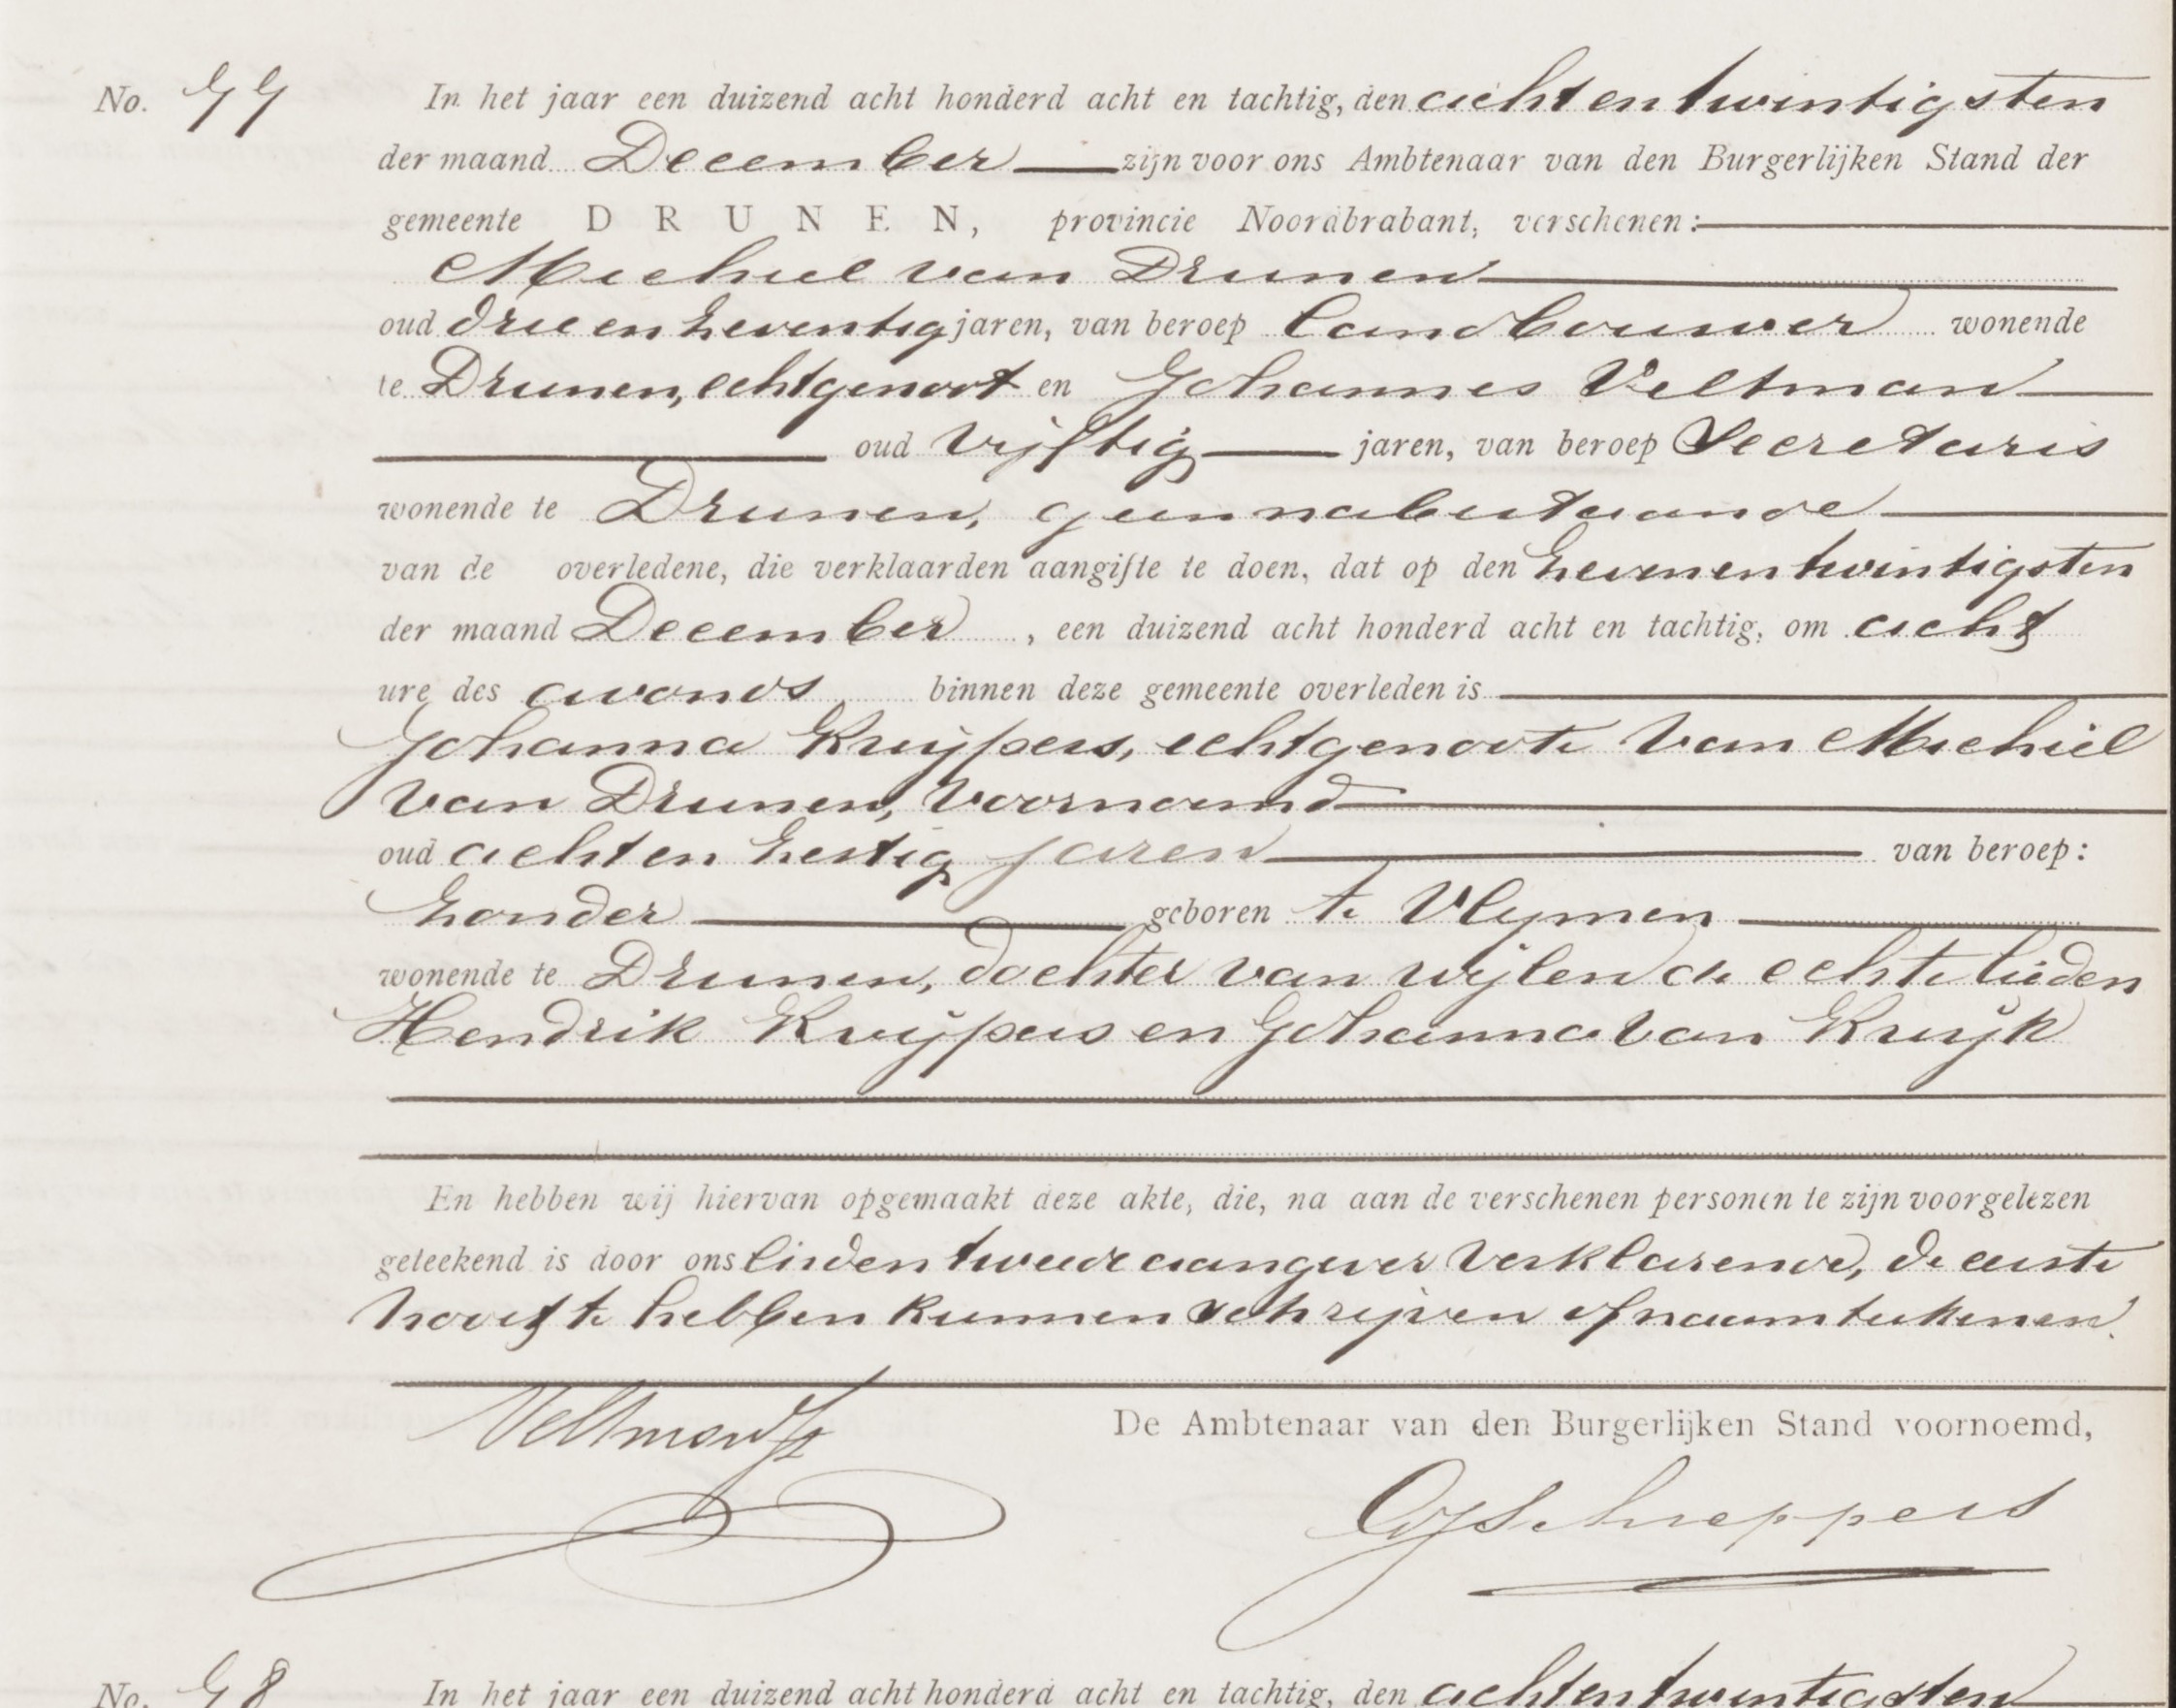 No. 77 In het jaar een duizend acht honderd acht en tachtig, den achtentwintigsten
der maand December zijn voor ons Ambtenaar van den Burgerlijken Stand der
gemeente DRUNEN, provincie Noordbrabant, verschenen:
Michiel van Drunen
oud drieenzeventig jaren, van beroep landbouwer wonende
te Drunen, echtgenoot en Johannes Veltman
oud vijftig jaren, van beroep Secretaris
wonende te Drunen, geennabestaande
van de overledene, die verklaarden aangifte te doen, dat op den zevenentwintigsten
der maand December, een duizend acht honderd acht en tachtig, om acht
ure des avonds binnen deze gemeente overleden is
Johanna Kuijpers, echtgenoote van Michiel
van Drunen, voornoemd
oud achtenzestig jaren van beroep:
zonder geboren te Vlymen
wonende te Drunen, dochter van wijlen de echtelieden
Hendrik Kuijpers en Johanna van Kuijk
En hebben wij hiervan opgemaakt deze akte, die, na aan de verschenen personen te zijn voorgelezen
geteekend is door ons en den tweede aangever verklarende, de eerste
nooit te hebben kunnen schrijven of naamteekenen.
Veltman
De Ambtenaar van den Burgerlijken Stand voornoemd,
No. 78 In het jaar een duizend acht honderd acht en tachtig, den achtentwintigsten